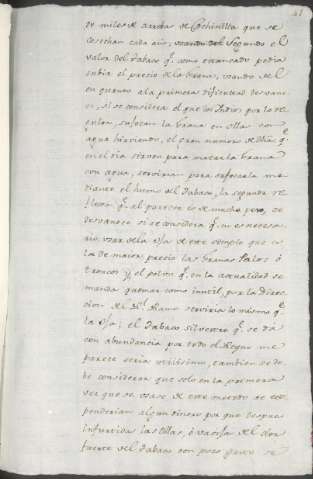 de miles de arrobas de Cochinilla que se
cosechan cada año, usando del Segundo el
valor del tabaco q.e como estancado podia
subir el precio de la Grana, usando de el
en quanto a la primera dificultad se desvane
si se considera el que los Indios por lo re
sufocan la Grana en ollas con
agua hirviendo, el gran numero de ollas q.e
en el dia sirven para matar la Grana
con agua, servirian para sofocarla me
diante el humo del tabaco, la segunda
q.e al parecer es de mucho peso, se
desvanece si se considera q.e no es necesa
rio usar de la oja de este simple que es
la de maior precio las Granas Palos ó
troncos y el polvo q.e en la actualidad se
manda quemar como inutil, por la Direc
cion del R.l Ramo serviria lo mismo q.e
la oja; el tabaco silvestre q.e se dá
con abundancia por todo el Reyno me
parece seria utilissimo, tambien se de
be considerar que solo en la primera
vez que se usase de este metodo se ex
penderian algun dinero por que despues
infurtida las ollas, ó vasija del olor
fuerte del tabaco con poco gasto se